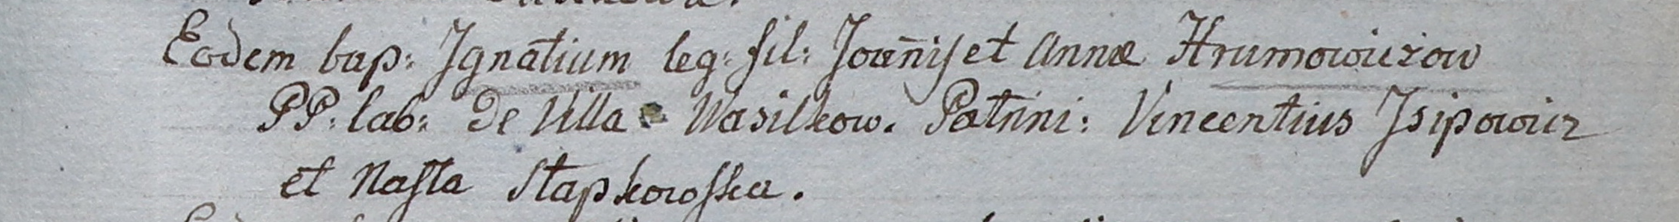 Eodem bap: Ignatium leg: fil: Joan̄is et Annæ Hrumowiczow
PP: lab: De Villa Wasilkow. Patrini: Vincentius Isipowicz
et Nasta Stapkowska.